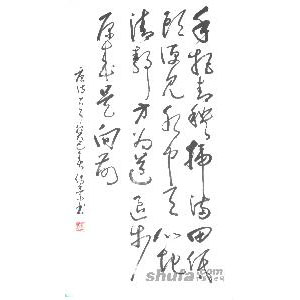 手把青秧插满田低
头便见水中天心地
清静方为道退步
原来是向前